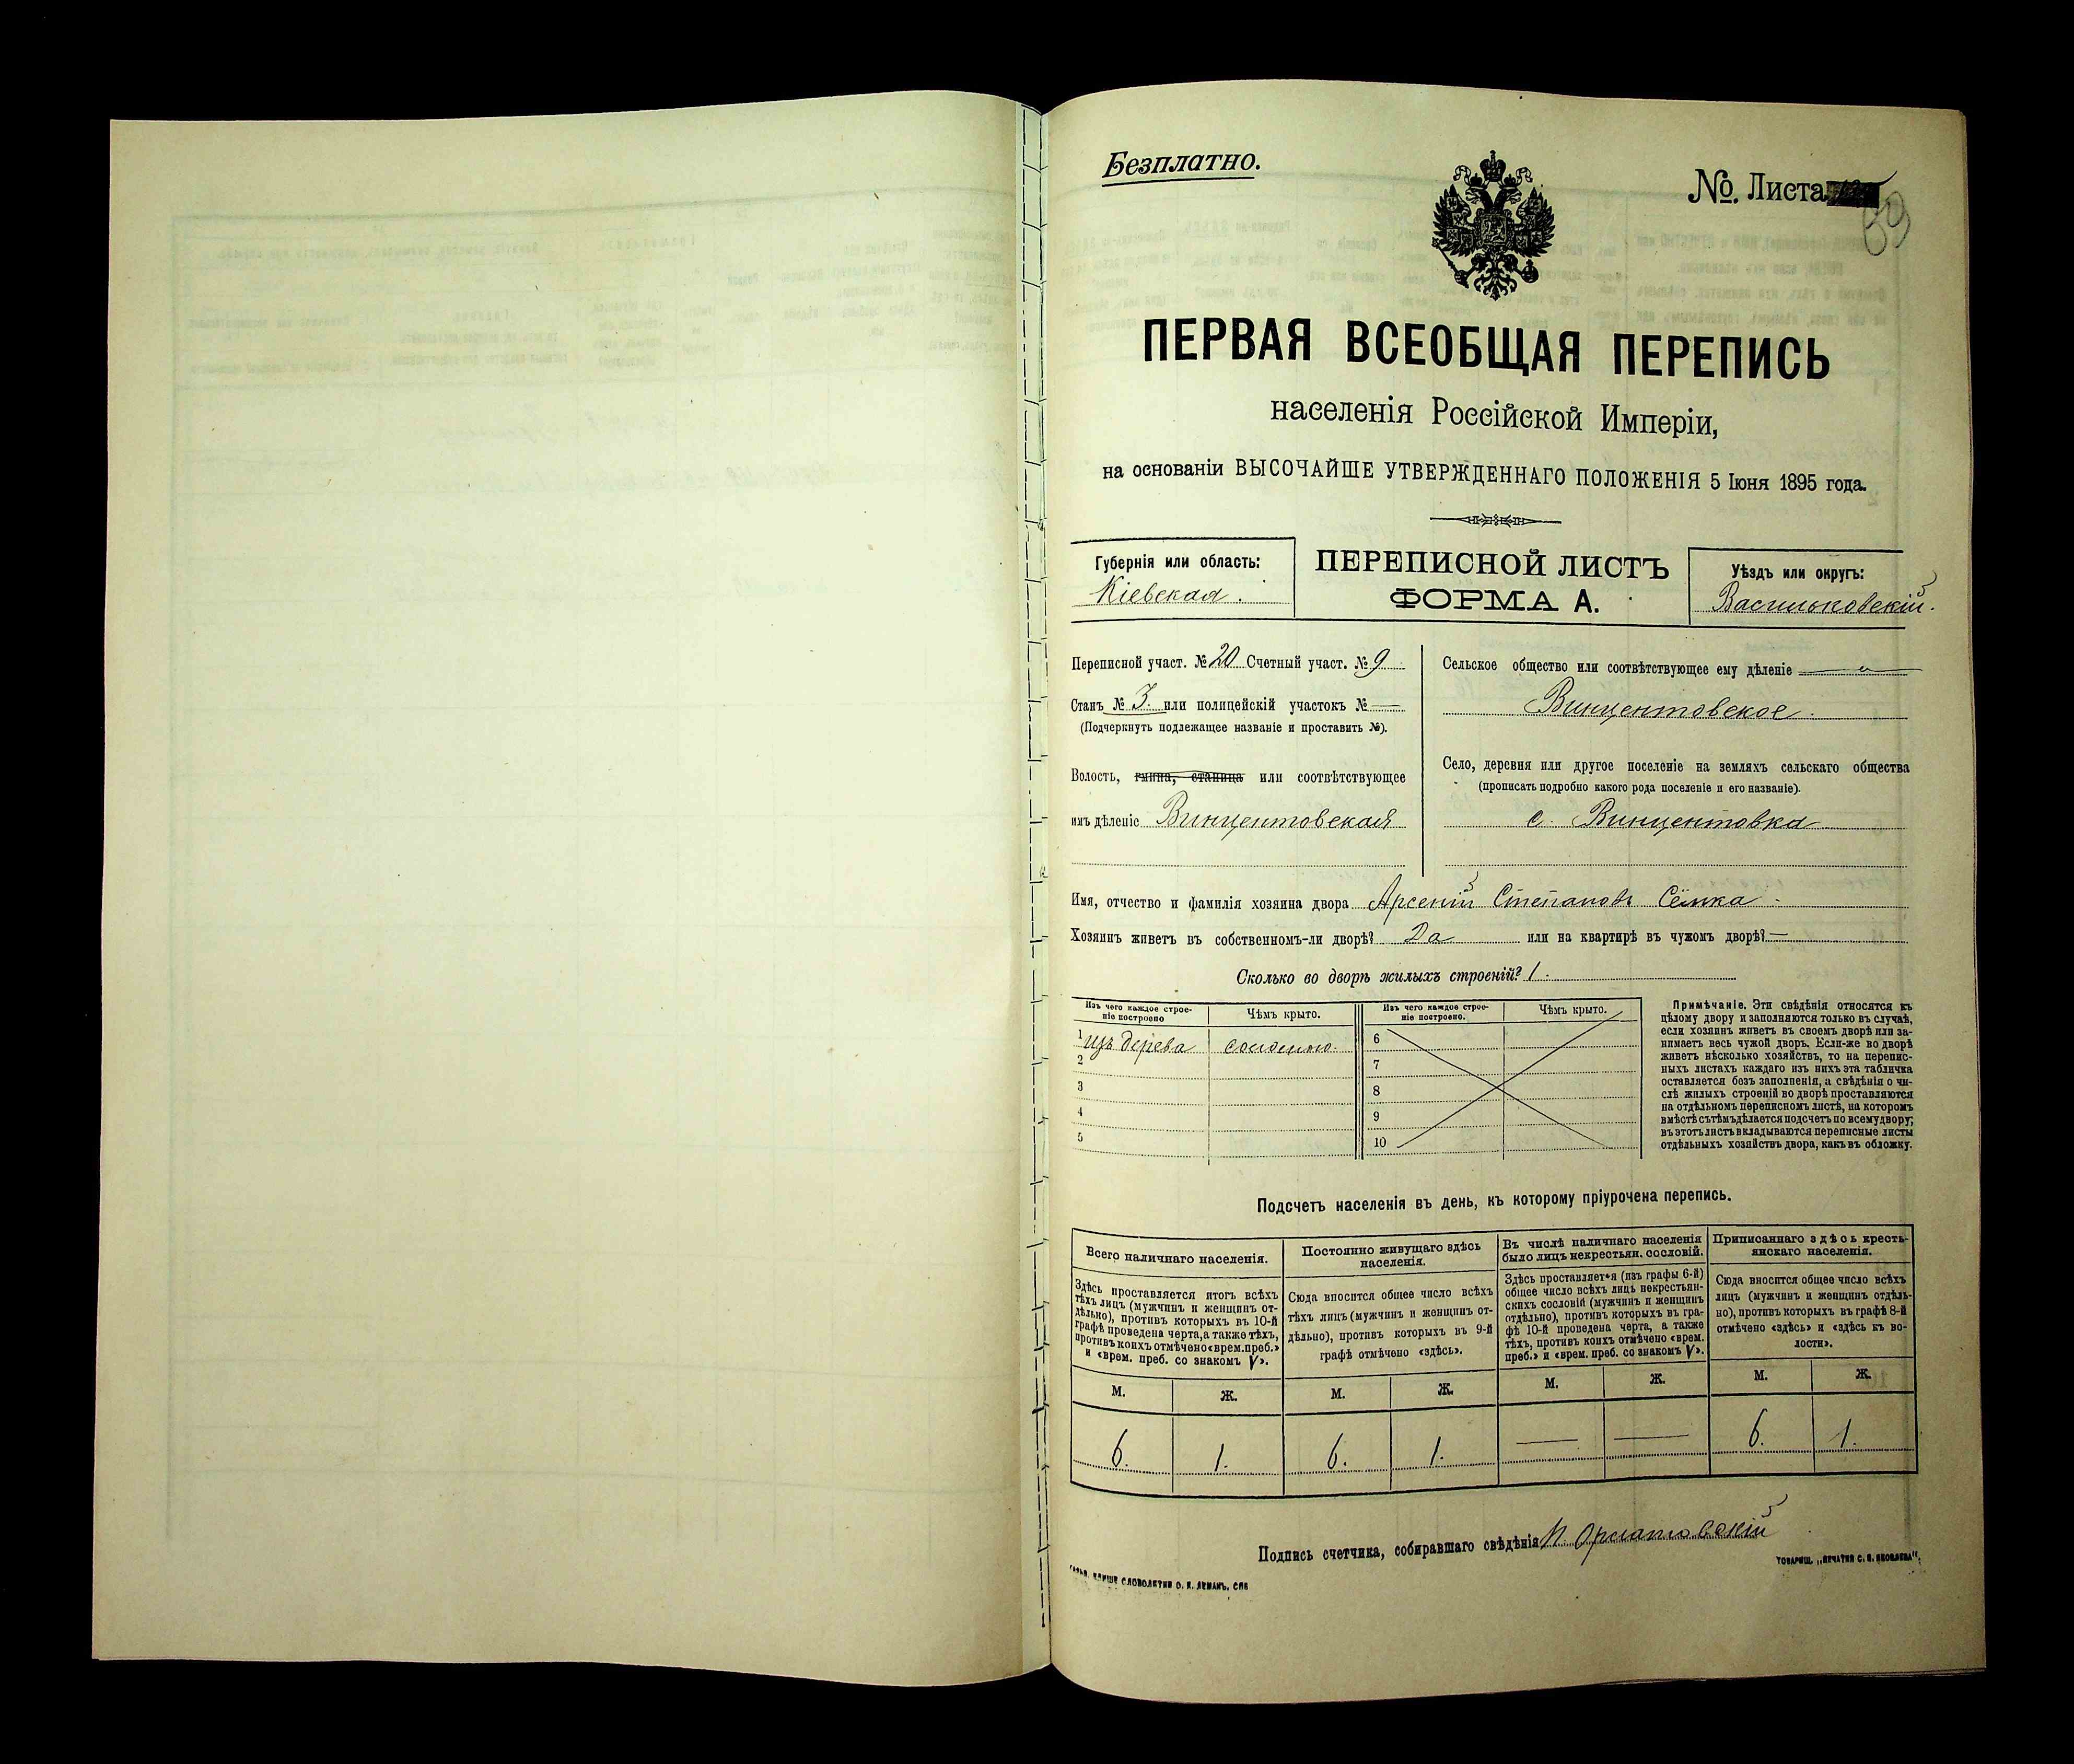 Безплатно.
№. Листа
69
ПЕРВАЯ ВСЕОБЩАЯ ПЕРЕПИСЬ
населенія Россійской Имперіи,
на основаніи ВЫСОЧАЙШЕ УТВЕРЖДЕННАГО ПОЛОЖЕНІЯ 5 Іюня 1895 года.
Губернія или область:
Кіевская.
ПЕРЕПИСНОЙ ЛИСТЪ
ФОРМА А.
Уѣздъ или округъ:
Васильковскій.
Переписной участ. № 20 Счетный участ. № 9
Станъ № 3. или полицейскій участокъ № —
(Подчеркнуть подлежащее названіе и проставить №).
Волость, гмина, станица или соотвѣтствующее
имъ дѣленіе Винцентовская
Сельское общество или соотвѣтствующее ему дѣленіе
Винцентовское.
Село, деревня или другое поселеніе на земляхъ сельскаго общества
(прописать подробно какого рода поселеніе и его названіе).
с. Винцентовка
Имя, отчество и фамилія хозяина двора Арсеній Степановъ Сёмка.
Хозяинъ живетъ въ собственномъ-ли дворѣ? Да или на квартирѣ въ чужомъ дворѣ? —
Сколько во дворѣ жилыхъ строеній? 1.
Изъ чего каждое строе-
ніе построено
Чѣмъ крыто.
1 изъ дерева соломою.
2
3
4
5
Изъ чего каждое строе-
ніе построено.
Чѣмъ крыто.
6
7
8
9
10
Примѣчаніе. Эти свѣдѣнія относятся къ
цѣлому двору и заполняются только въ случаѣ,
если хозяинъ живетъ въ своемъ дворѣ или за-
нимаетъ весь чужой дворъ. Если-же во дворѣ
живетъ нѣсколько хозяйствъ, то на перепис-
ныхъ листахъ каждаго изъ нихъ эта табличка
оставляется безъ заполненія, а свѣдѣнія о чи-
слѣ жилыхъ строеній во дворѣ проставляются
на отдѣльномъ переписномъ листѣ, на которомъ
вмѣстѣ съ тѣмъ дѣлается подсчетъ по всему двору;
въ этотъ листъ вкладываются переписные листы
отдѣльныхъ хозяйствъ двора, какъ въ обложку.
Подсчетъ населенія въ день, къ которому пріурочена перепись.
Всего наличнаго населенія.
Здѣсь проставляется итогъ всѣхъ
тѣхъ лицъ (мужчинъ и женщинъ от-
дѣльно), противъ которыхъ въ 10-й
графѣ проведена черта, а также тѣхъ,
противъ коихъ отмѣчено «врем. преб.»
и «врем. преб. со знакомъ V».
М. Ж.
6. 1.
Постоянно живущаго здѣсь
населенія.
Сюда вносится общее число всѣхъ
тѣхъ лицъ (мужчинъ и женщинъ от-
дѣльно), противъ которыхъ въ 9-й
графѣ отмѣчено «здѣсь».
М. Ж.
6. 1.
Въ числѣ наличнаго населенія
было лицъ некрестьян. сословій.
Здѣсь проставляется (изъ графы 6-й)
общее число всѣхъ лицъ некрестьян-
скихъ сословій (мужчинъ и женщинъ
отдѣльно), противъ которыхъ въ гра-
фѣ 10-й проведена черта, а также
тѣхъ, противъ коихъ отмѣчено «врем.
преб.» и «врем. преб. со знакомъ V».
М. Ж.
— —
Приписаннаго здѣсь кресть-
янскаго населенія.
Сюда вносится общее число всѣхъ
лицъ (мужчинъ и женщинъ отдѣль-
но), противъ которыхъ въ графѣ 8-й
отмѣчено «здѣсь» и «здѣсь къ во-
лости».
М. Ж.
6. 1.
Подпись счетчика, собиравшаго свѣдѣнія
СЛОВОЛИТНИ О. И. ЛЕМАНЪ, СПБ
ТОВАРИЩ. „ПЕЧАТНЯ С. П. ЯКОВЛЕВА“.